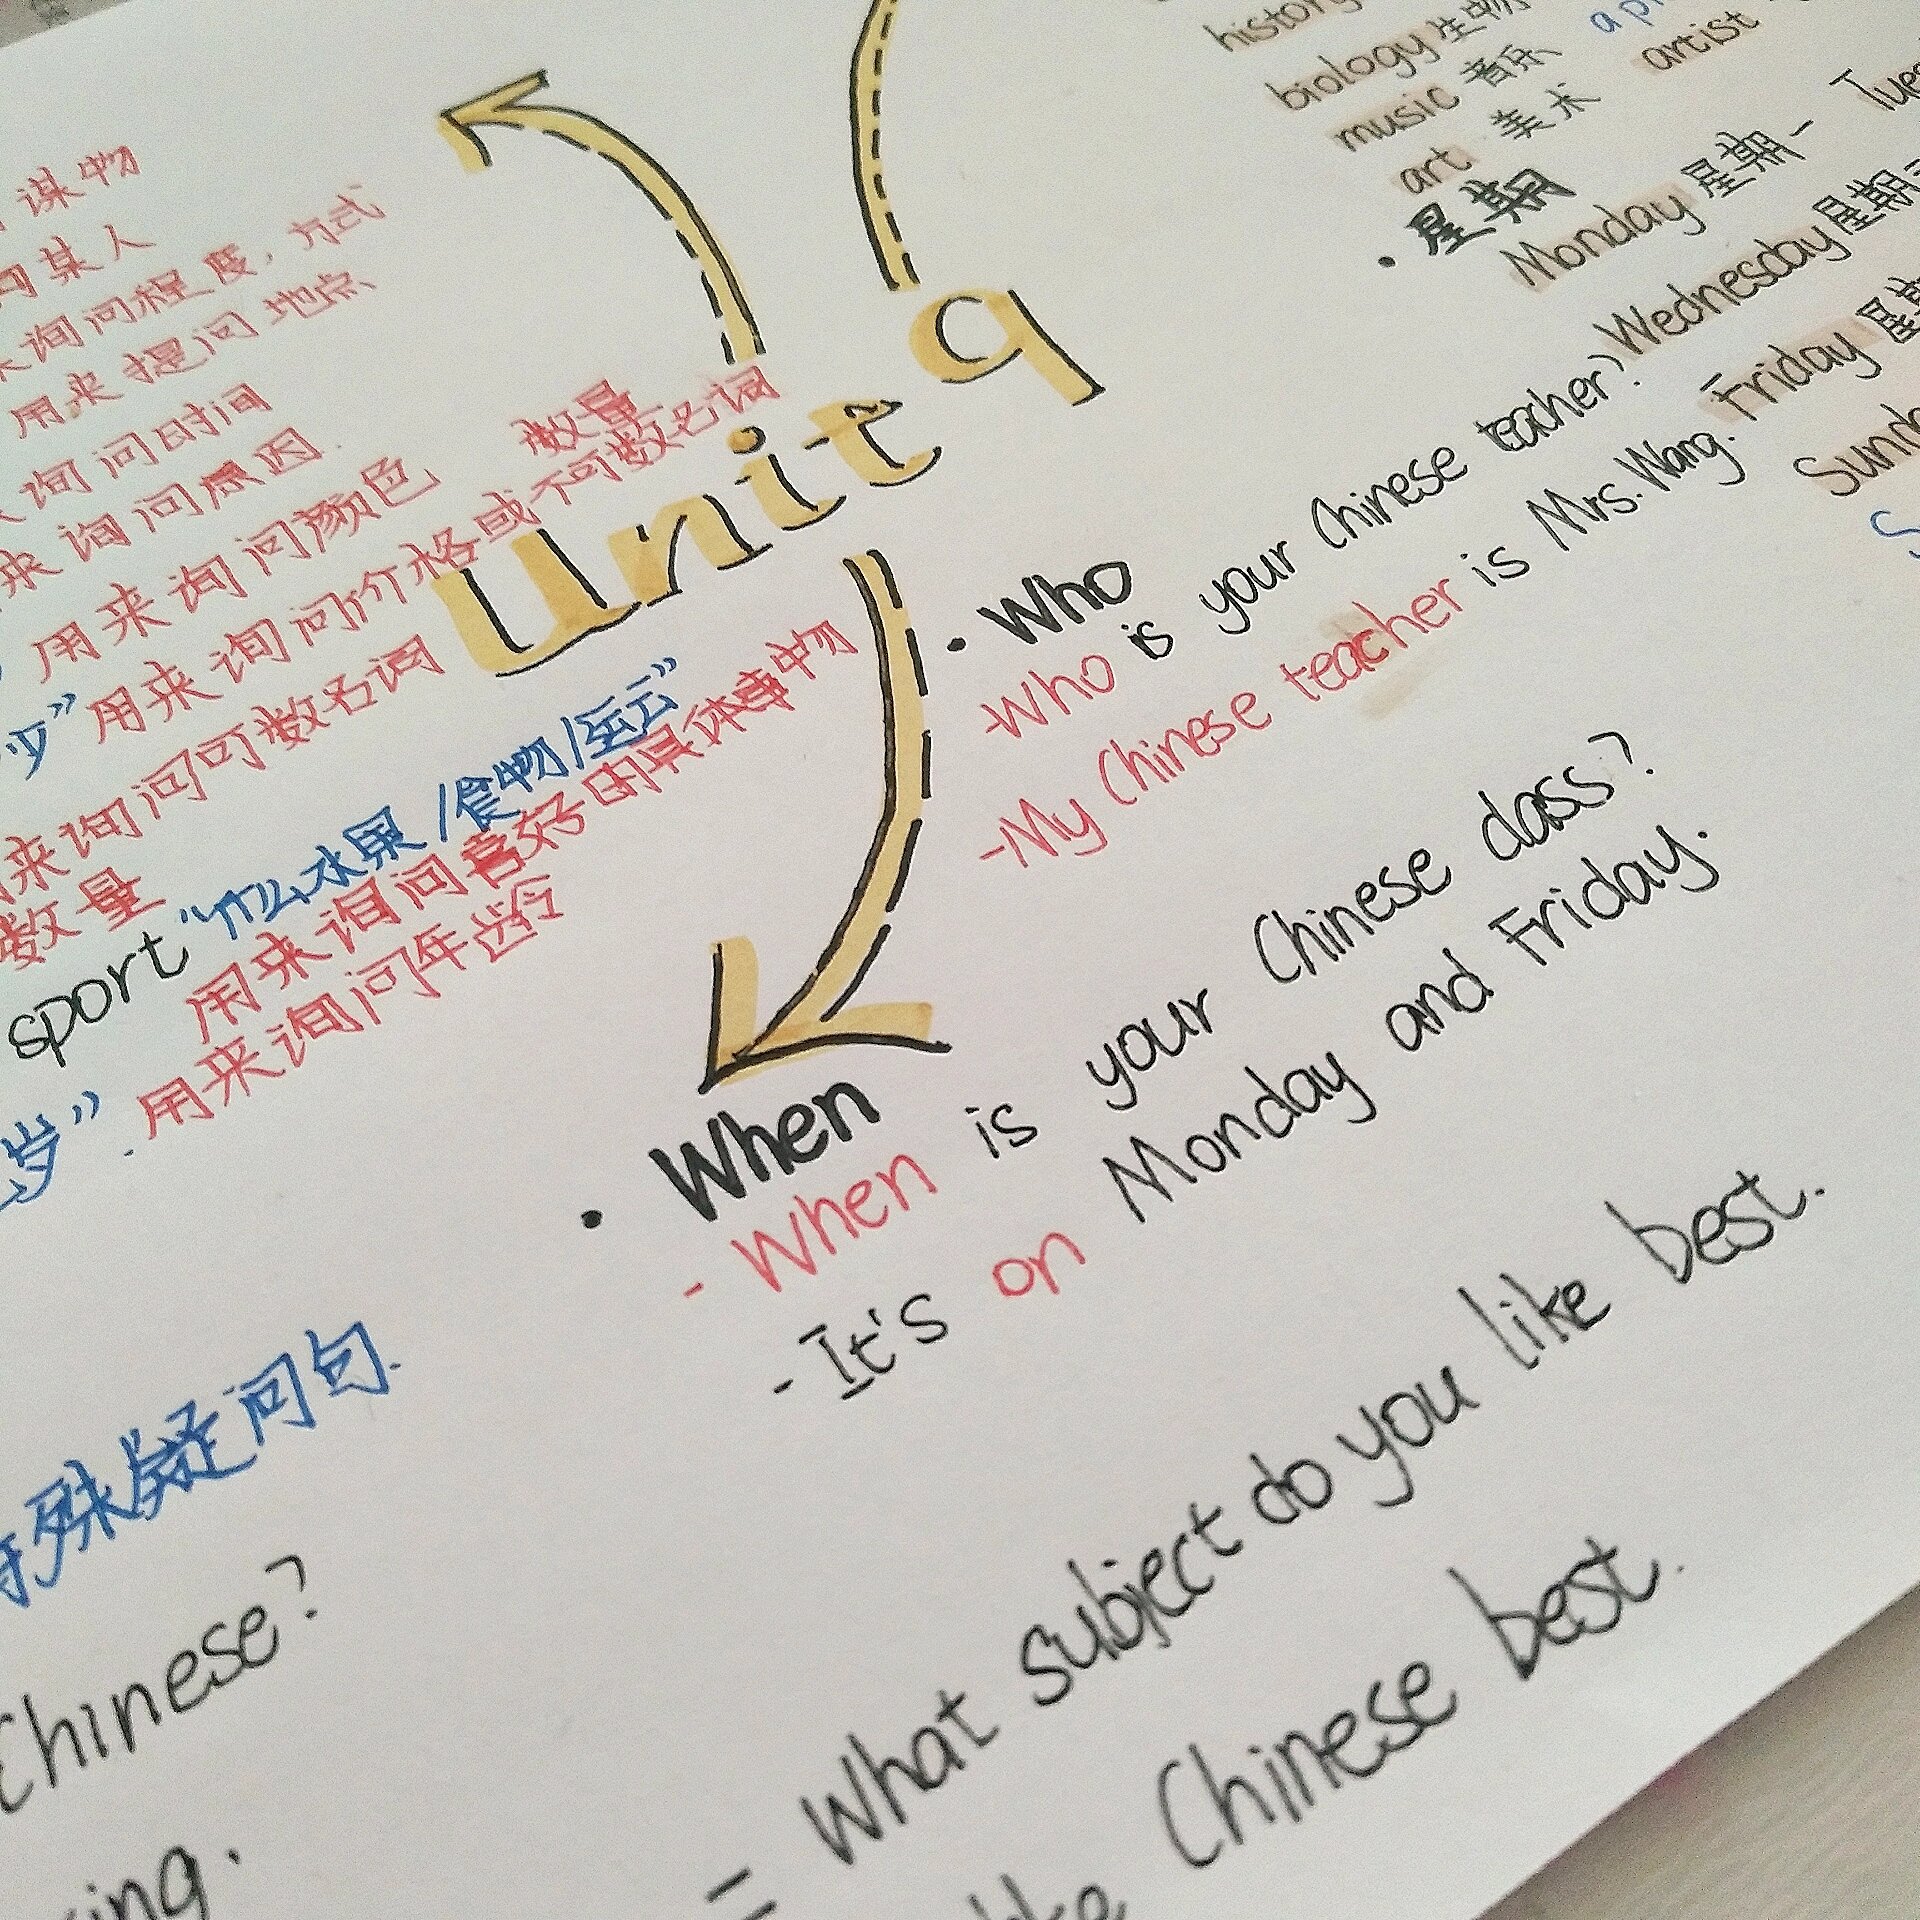 history
biology 生物
music 音乐
art 美术
artist
· 星期
Monday 星期一
Wednesday 星期
Friday 星期
谋物
问某人
询问程度,方式
用来提问地点
询问时间
来询问原因
用来询问颜色
用来询问价格或不可数名词
数量
来询问可数名词
数量
sport “什么水果/食物/运云”
用来询问喜好的具体事物
岁”. 用来询问年龄
Unit 9
· Who
-Who is your Chinese teacher?
-My Chinese teacher is Mrs. Wang.
· When
- When is your Chinese class?
- It's on Monday and Friday.
殊疑问句.
Chinese?
= What subject do you like best.
Chinese best.